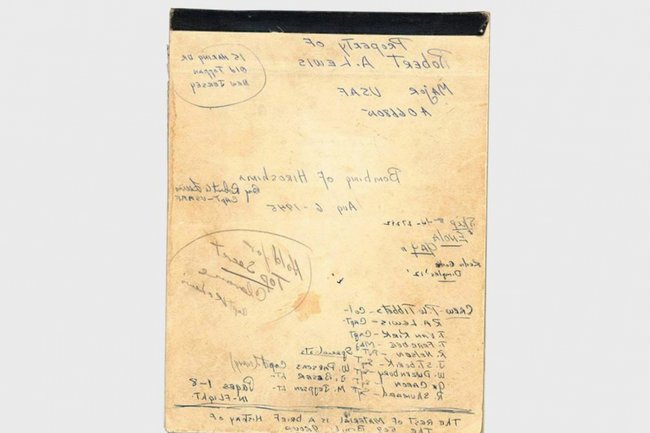 Property of
Robert A. Lewis
Major USAF
AO 66805
15 Haring Dr
Old Tappan
New Jersey
Bombing of Hiroshima
By Robert A Lewis
Capt - USAAF
Aug 6 - 1945
Ship
Enola
Gay
Radio Call
Dimples '12'
Hold for
Top Secret
Clearance
Crew - P.W Tibbets - Col -
R A Lewis - Capt
T Van Kirk - Capt
T. Ferebee - Maj
R. Nelson - Pvt
J Stiborik - Sgt
W. Duzenbury
G. Caron
R. Shumard
Specialists
W. Parsons Capt (Navy)
J. Beser Lt -
M. Jeppson Lt -
Pages 1-8
In-Flight
The rest of material is a brief history of
The 509 Bomb Group